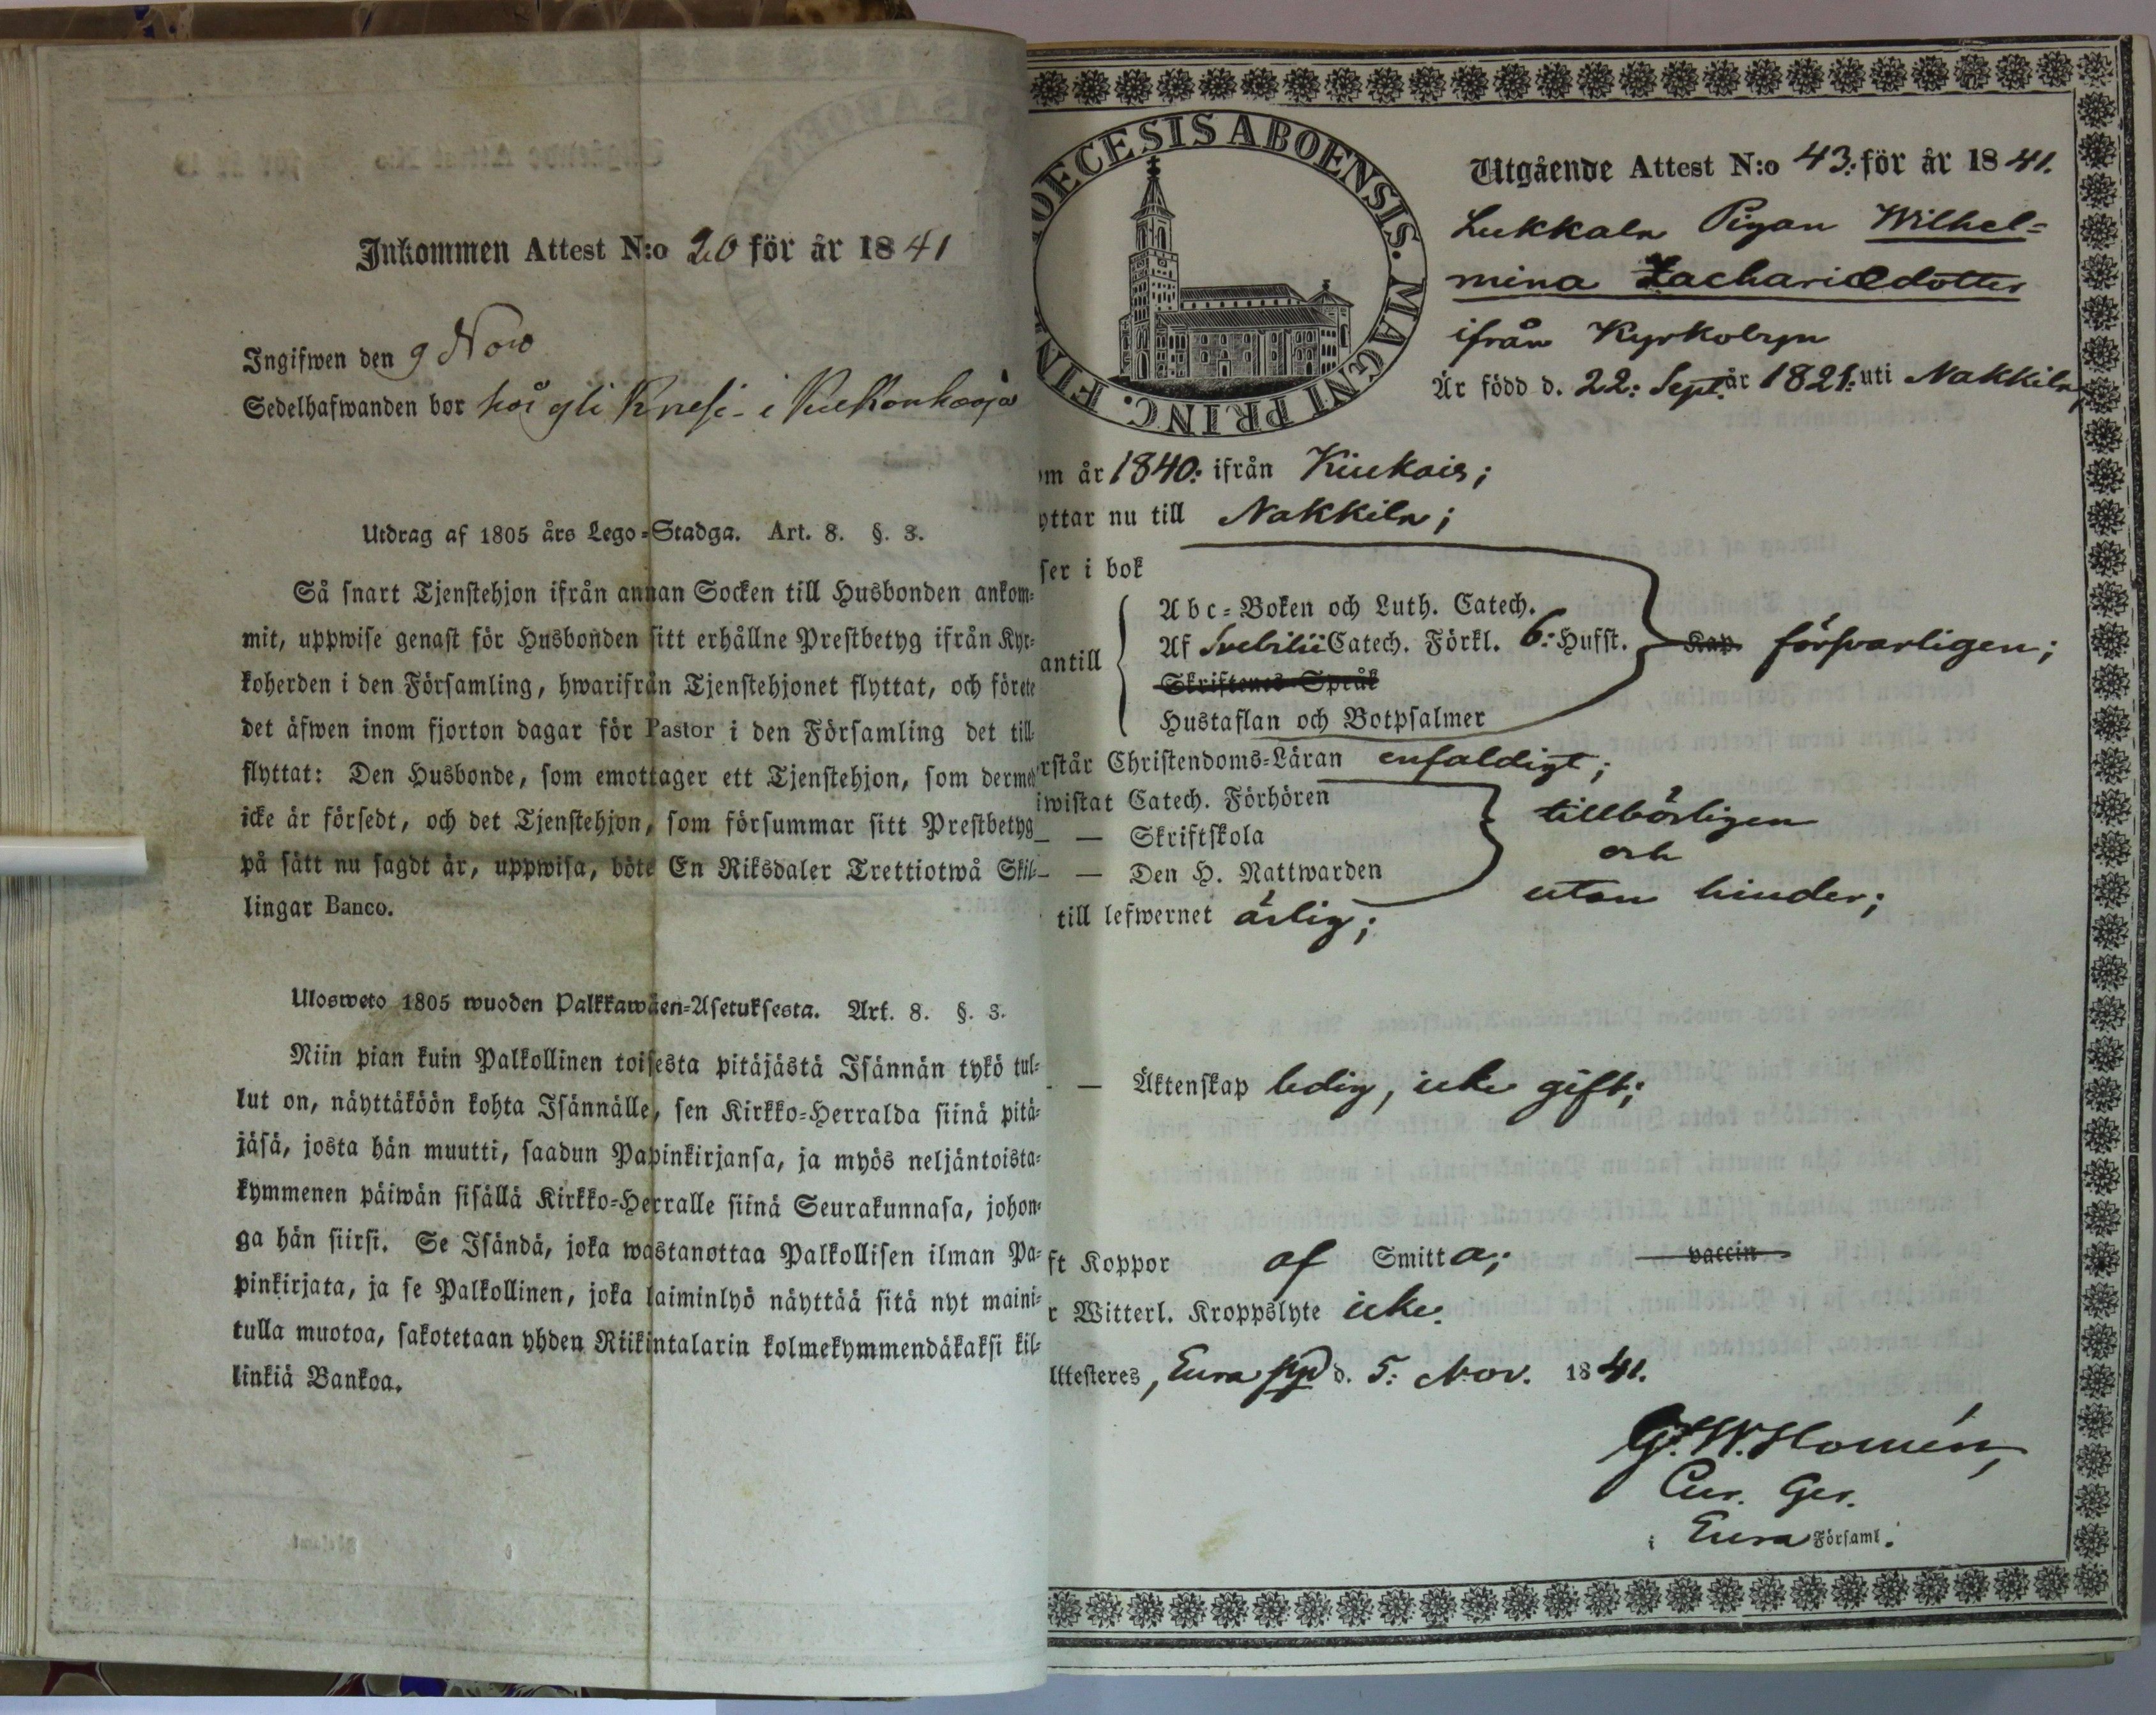 Inkommen Attest N:o 20 för år 1841
Ingifwen den 9 Nov
Sedelhafwanden bor hos i
Utdrag af 1805 års Lego-Stadga. Art. 8. §. 3.
Så snart Tjenstehjon ifrån annan Socken till Husbonden ankom-
mit, uppwise genast för Husbonden sitt erhållne Prestbetyg ifrån Kyr-
koherden i den Församling, hwarifrån Tjenstehjonet flyttat, och förete
det äfwen inom fjorton dagar för Pastor i den Församling det till-
flyttat: Den Husbonde, som emottager ett Tjenstehjon, som dermed
icke är försedt, och det Tjenstehjon, som försummar sitt Prestbetyg
på sätt nu sagdt är, uppwisa, böte En Riksdaler Trettiotwå Skil-
lingar Banco.
Ulosweto 1805 wuoden Palkkawäen-Asetuksesta. Art. 8. §. 3.
Niin pian kuin Palkollinen toisesta pitäjästä Isännän tykö tul-
lut on, näyttäköön kohta Isännälle, sen Kirkko-Herralda siinä pitä-
jäsä, josta hän muutti, saadun Papinkirjansa, ja myös neljäntoista-
kymmenen päiwän sisällä Kirkko-Herralle siinä Seurakunnasa, johon-
ga hän siirsi. Se Isändä, joka wastanottaa Palkollisen ilman Pa-
pinkirjata, ja se Palkollinen, joka laiminlyö näyttää sitä nyt maini-
tulla muotoa, sakotetaan yhden Riikintalarin kolmekymmendäkaksi kil-
linkiä Bankoa.
OECESIS ABOENSIS. MAGNI PRINC. FIN
Utgående Attest N:o 43. för år 1841.
Lukkala Pigan Wilhel-
mina Zachariædotter
ifrån Kyrkobyn
Är född d. 22: Sept. år 1821: uti Nakkila,
om år 1840: ifrån Kiukais;
yttar nu till Nakkila;
ser i bok
Abc-Boken och Luth. Catech.
antill Af Svebilii Catech. Förkl. 6: Hufst. Kap försvarligen;
Skriftenes Språk
Hustaflan och Botpsalmer
rstår Christendoms-Läran enfaldigt;
iwistat Catech. Förhören tillbörligen
— — Skriftskola och
— — Den H. Nattwarden utan hinder;
till lefwernet ärlig;
— — Äktenskap ledig, icke gift;
ft Koppor af Smitta; vaccin
r Witterl. Kroppslyte icke.
ttesteres, Eura d. 5: Nov. 1841.
G. W. Homén,
Cur. Ger.
i Eura Församl.